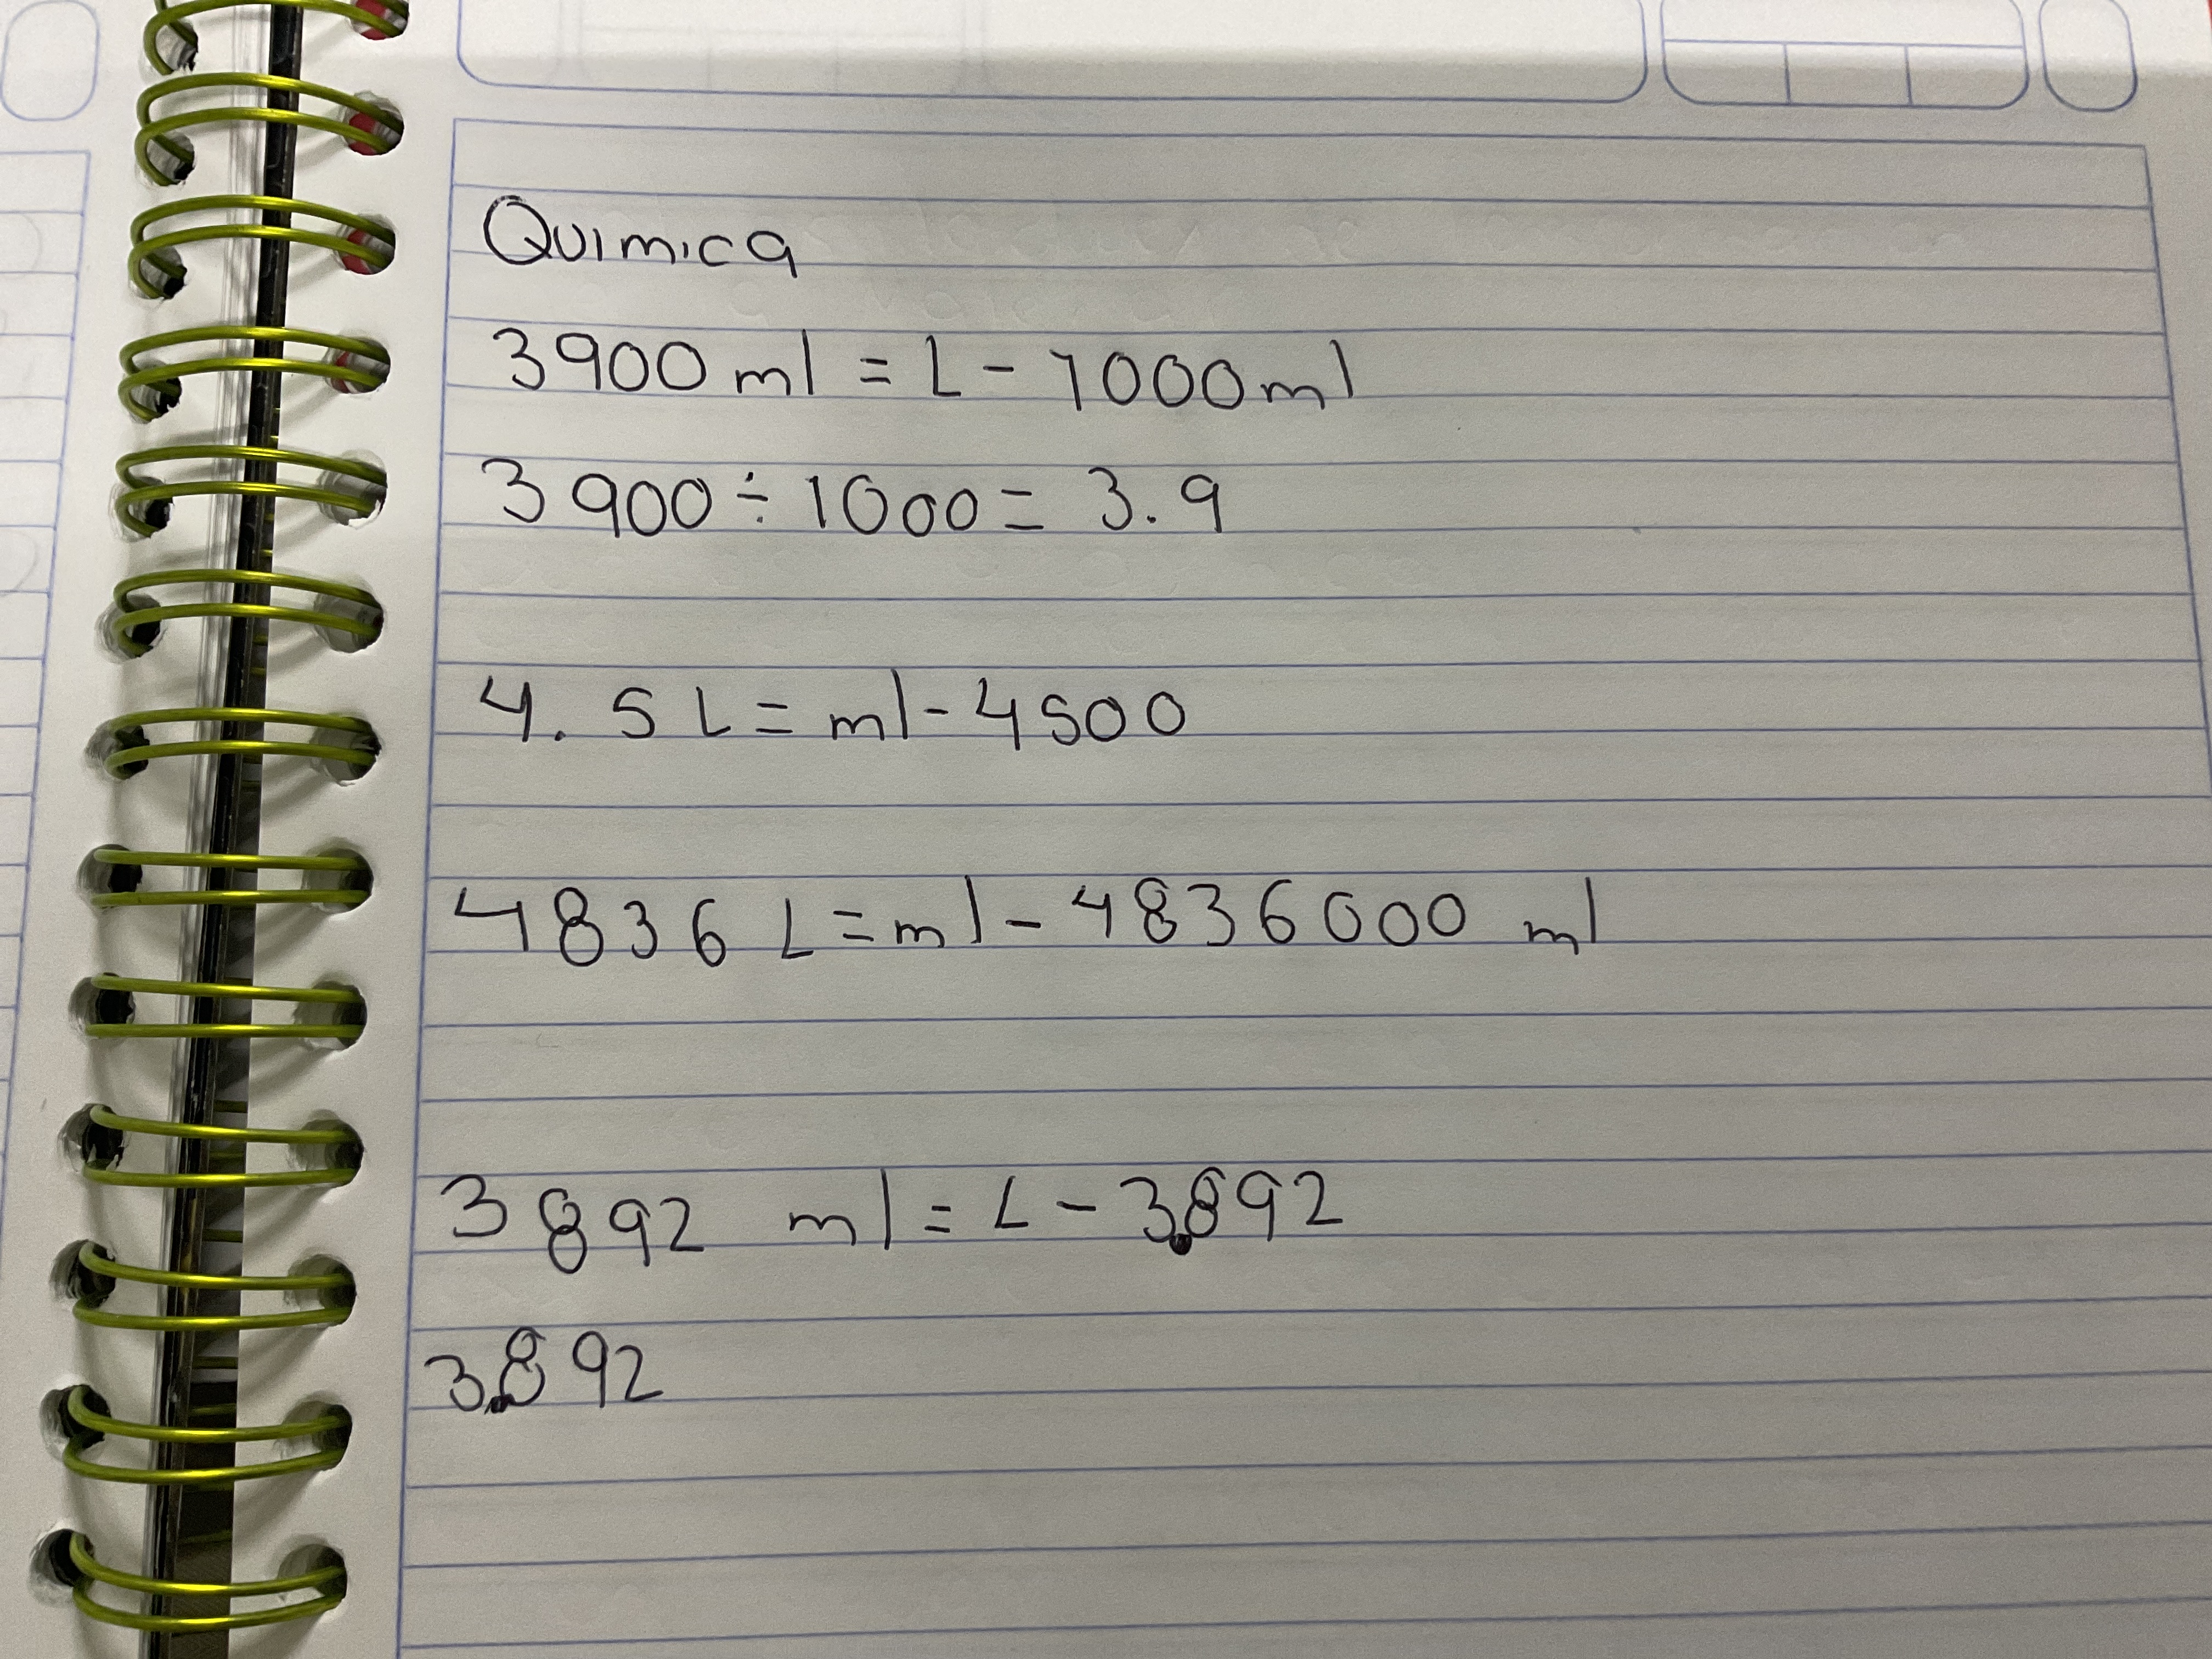 Quimica
3900 ml = L - 1000 ml
3900 ÷ 1000 = 3.9
4.5 L = ml - 4500
4836 L = ml - 4836000 ml
3892 ml = L - 3.892
3.892